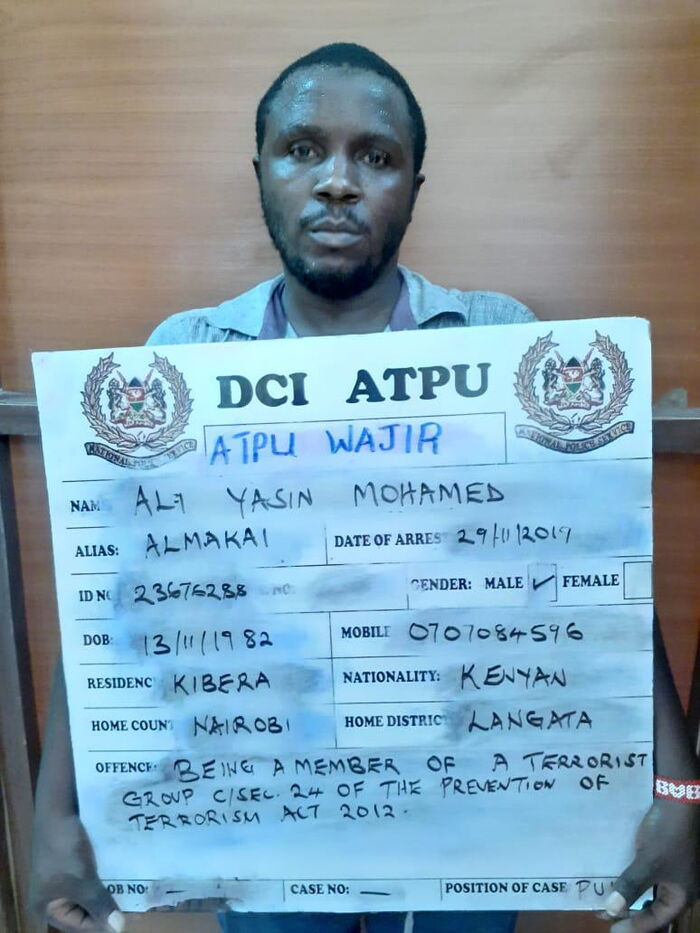 DCI ATPU
NATIONAL POLICE SERVICE
NATIONAL POLICE SERVICE
ATPU WAJIR
NAM ALI YASIN MOHAMED
ALIAS: ALMAKAI DATE OF ARRES 29/11/2019
ID N 23675288 NO: GENDER: MALE ✓ FEMALE
DOB: 13/11/1982 MOBILE 0707084596
RESIDENC KIBERA NATIONALITY: KENYAN
HOME COUN NAIROBI HOME DISTRIC LANGATA
OFFENCE: BEING A MEMBER OF A TERRORIST
GROUP C/SEC. 24 OF THE PREVENTION OF
TERRORISM ACT 2012.
OB NO: — CASE NO: — POSITION OF CASE PU